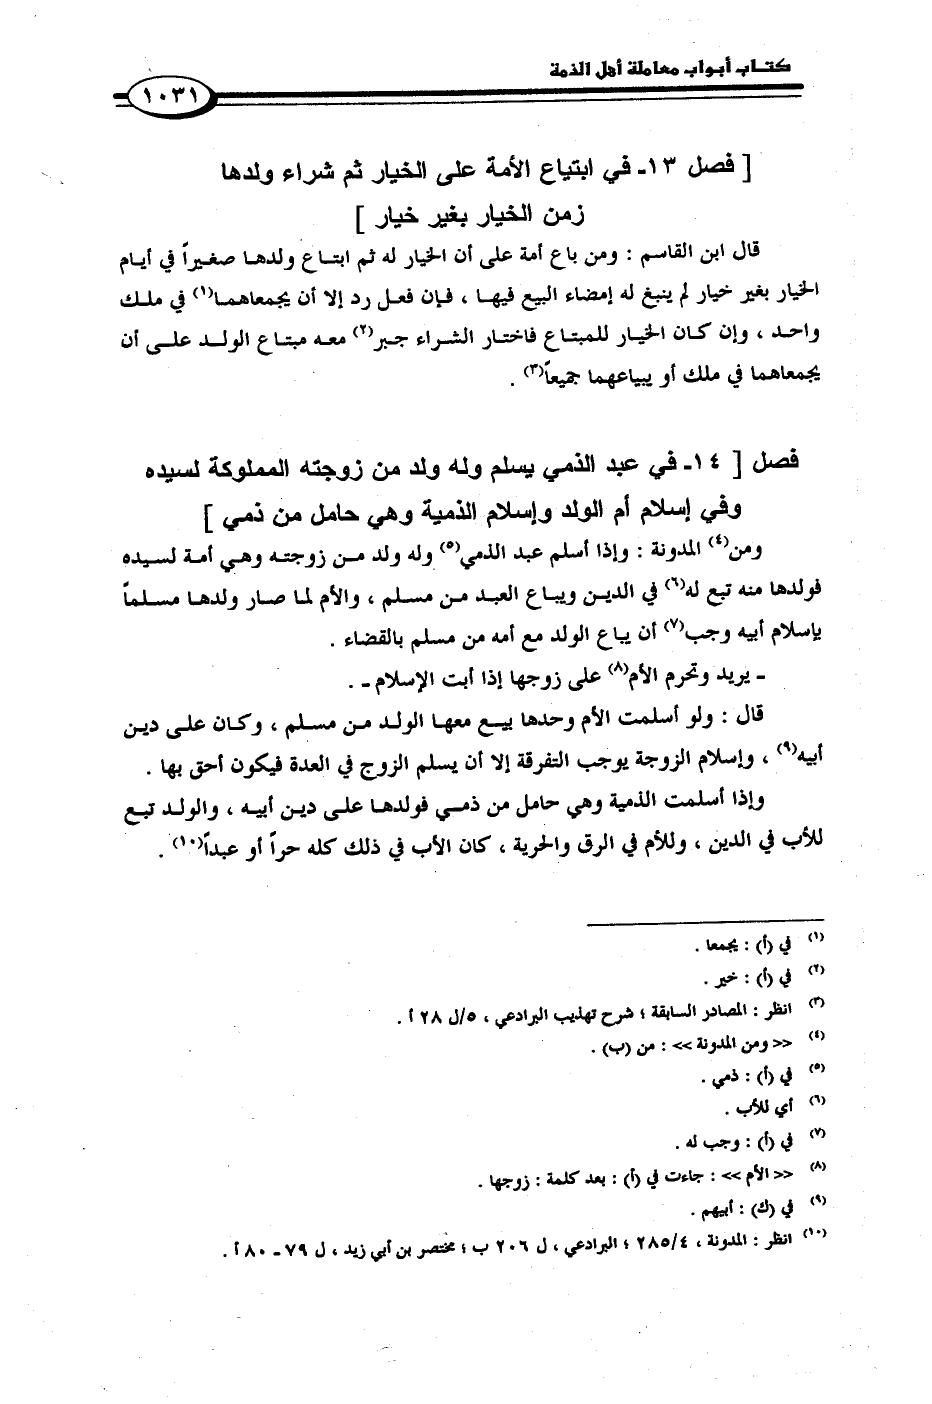 كتاب أبواب معاملة أهل الذمة
١٠٣١
[ فصل ١٣ـ في ابتياع الأمة على الخيار ثم شراء ولدها
زمن الخيار بغير خيار ]
قال ابن القاسم : ومن باع أمة على أن الخيار له ثم ابتاع ولدها صغيراً في أيام
الخيار بغير خيار لم ينبغ له إمضاء البيع فيها ، فإن فعل رد إلا أن يجمعاهما(١) في ملك
واحد ، وإن كان الخيار للمبتاع فاختار الشراء جبر(٢) معه مبتاع الولد على أن
يجمعاهما في ملك أو يبيعاهما جميعاً(٣) .
فصل [ ١٤ـ في عبد الذمي يسلم وله ولد من زوجته المملوكة لسيده
وفي إسلام أم الولد وإسلام الذمية وهي حامل من ذمي ]
ومن(٤) المدونة : وإذا أسلم عبد الذمي(٥) وله ولد من زوجته وهي أمة لسيده
فولدها منه تبع له(٦) في الدين ويباع العبد من مسلم ، والأم لما صار ولدها مسلماً
بإسلام أبيه وجب(٧) أن يباع الولد مع أمه من مسلم بالقضاء .
ـ يريد وتحرم الأم(٨) على زوجها إذا أبت الإسلام ـ .
قال : ولو أسلمت الأم وحدها بيع معها الولد من مسلم ، وكان على دين
أبيه(٩) ، وإسلام الزوجة يوجب التفرقة إلا أن يسلم الزوج في العدة فيكون أحق بها .
وإذا أسلمت الذمية وهي حامل من ذمي فولدها على دين أبيه ، والولد تبع
للأب في الدين ، وللأم في الرق والحرية ، كان الأب في ذلك كله حراً أو عبداً(١٠) .
(١) في (أ) : يجمعا .
(٢) في (أ) : خير .
(٣) انظر : المصادر السابقة ؛ شرح تهذيب البرادعي ، ٥/ل ٢٨ أ .
(٤) << ومن المدونة >> : من (ب) .
(٥) في (أ) : ذمي .
(٦) أي للأب .
(٧) في (أ) : وجب له .
(٨) << الأم >> : جاءت في (أ) : بعد كلمة : زوجها .
(٩) في (ك) : أبيهم .
(١٠) انظر : المدونة ، ٢٨٥/٤ ؛ البرادعي ، ل ٢٠٦ ب ؛ مختصر بن أبي زيد ، ل ٧٩ ـ ٨٠ أ .